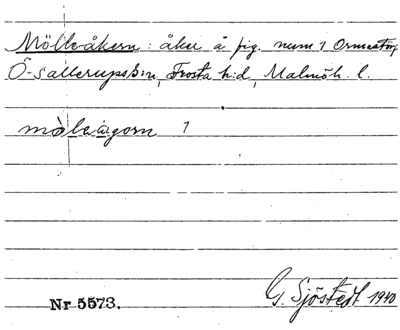 Möllvåkern: åker å fig. num 1 Ormastorp
Ö-Sallerups s:n, Frosta h:d, Malmöh. l.
mòlvågorn 1
G. Sjöstedt 1940
Nr 5573.